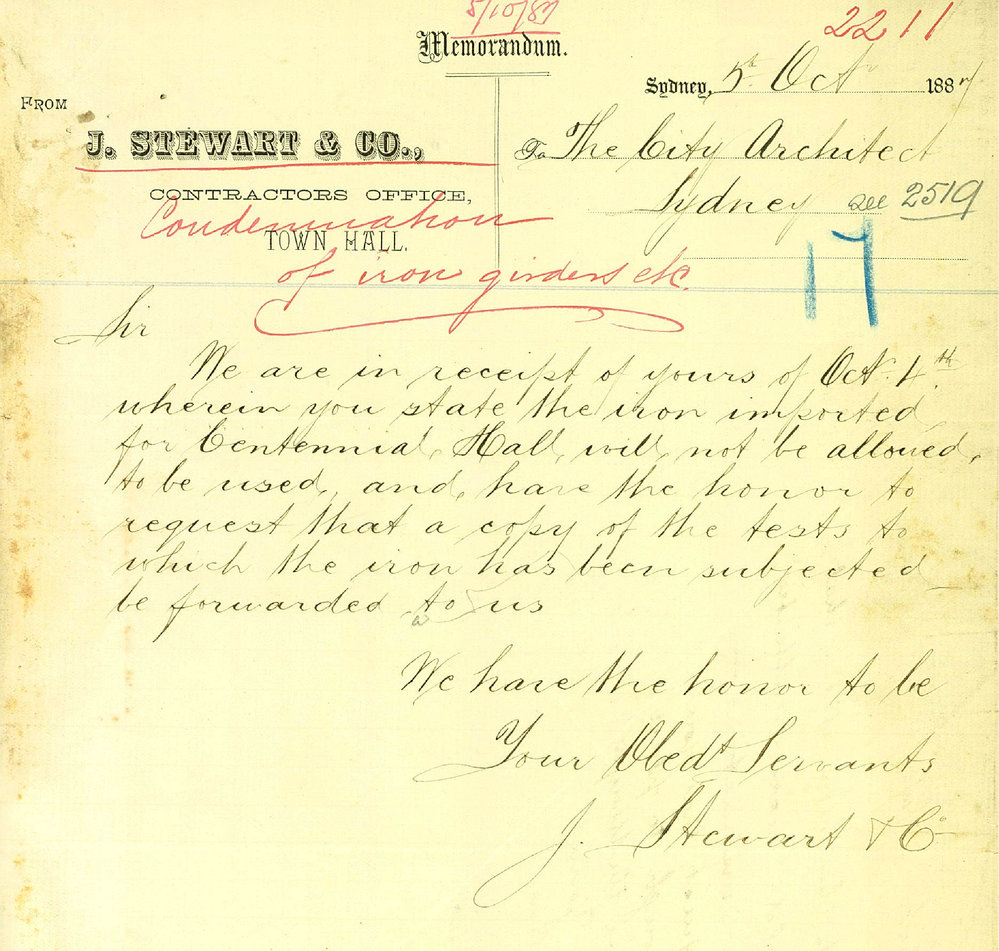 5/10/87
2211
Memorandum.
Sydney, 5th Oct 1887
FROM
J. STEWART & CO.,
To The City Architect
CONTRACTORS OFFICE,
Sydney see 2519
Condemnation
TOWN HALL.
17
of iron girders etc.
Sir
We are in receipt of yours of Oct. 4th.
wherein you state the iron imported
for Centennial Hall, will not be allowed,
to be used, and, have the honor to
request that a copy of the tests to
which the iron has been subjected
be forwarded to us
We have the honor to be
Your Obedt Servants
J. Stewart & Co